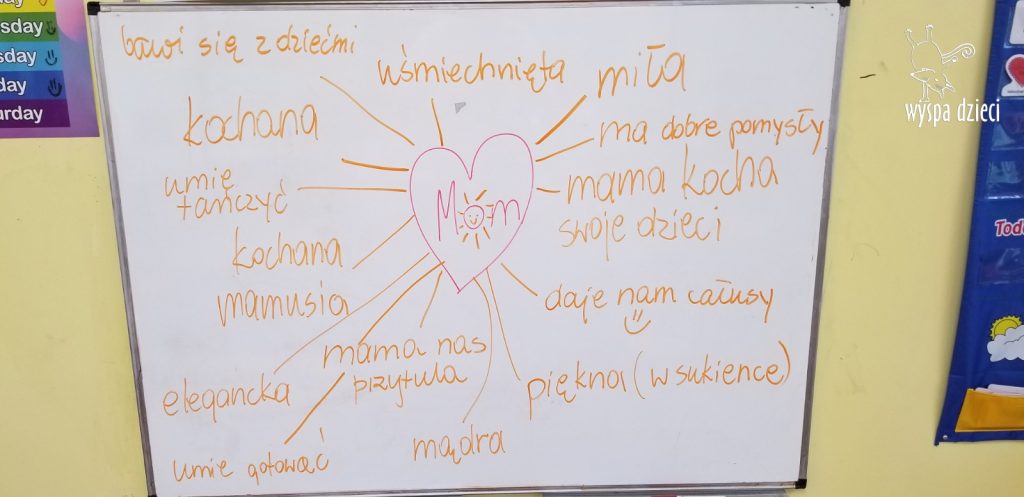 sday
sday
day
urday
bawi się z dziećmi
wśmiechnięta
miła
kochana
ma dobre pomysły
umię
tańczyć
mama kocha
swoje dzieci
kochana
mamusia
Mom
daje nam całusy
mama nas
przytula
elegancka
piękna (w sukience)
umie gotować
mądra
wyspa dzieci
Tod